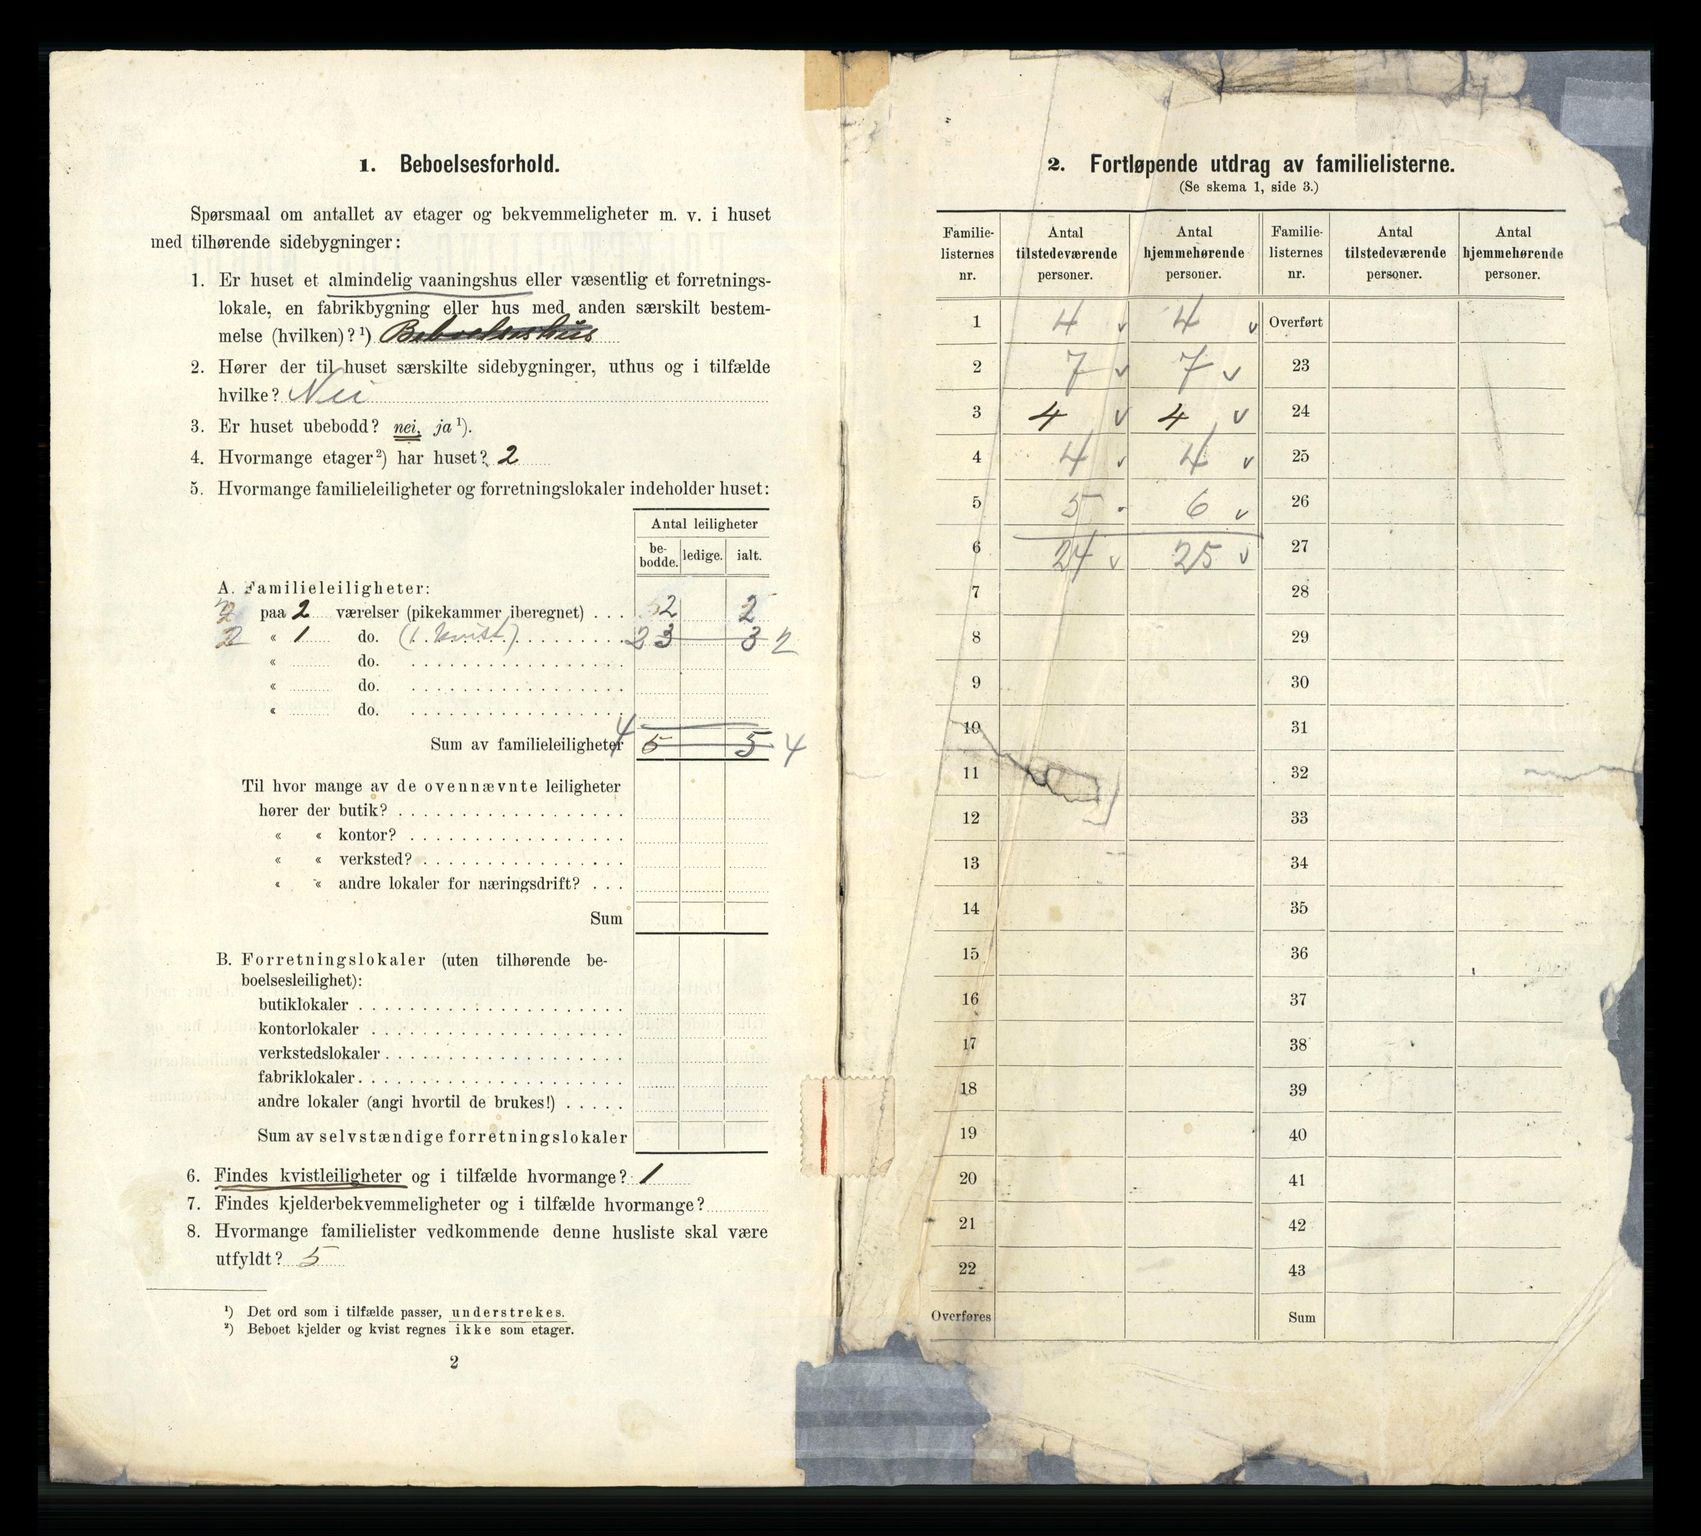 1. Beboelsesforhold.
Spørsmaal om antallet av etager og bekvemmeligheter m. v. i huset
med tilhørende sidebygninger:
1. Er huset et almindelig vaaningshus eller væsentlig et forretnings-
lokale, en fabrikbygning eller hus med anden særskilt bestem-
melse (hvilken)?¹) Beboelseshus
2. Hører der til huset særskilte sidebygninger, uthus og i tilfælde
hvilke? Nei
3. Er huset ubebodd? nei, ja¹).
4. Hvormange etager²) har huset? 2
5. Hvormange familieleiligheter og forretningslokaler indeholder huset:
Antal leiligheter
be-
bodde. ledige. ialt.
A. Familieleiligheter:
2 paa 2 værelser (pikekammer iberegnet) . . . 2 2
2 « 1 do. (1 kvist) . . . . . . . . 2 3 3 2
« do. . . . . . . . . . . . . . . . .
« do. . . . . . . . . . . . . . . . .
« do. . . . . . . . . . . . . . . . .
Sum av familieleiligheter 4 5 5 4
Til hvor mange av de ovennævnte leiligheter
hører der butik? . . . . . . . . . . . . . . . . . .
« « kontor? . . . . . . . . . . . . . . . . .
« « verksted? . . . . . . . . . . . . . . . .
« « andre lokaler for næringsdrift? . . .
Sum
B. Forretningslokaler (uten tilhørende be-
boelsesleilighet):
butiklokaler . . . . . . . . . . . . . . . . . . . . .
kontorlokaler . . . . . . . . . . . . . . . . . . . .
verkstedslokaler . . . . . . . . . . . . . . . . . . .
fabriklokaler . . . . . . . . . . . . . . . . . . . . .
andre lokaler (angi hvortil de brukes!) . . . . .
Sum av selvstændige forretningslokaler
6. Findes kvistleiligheter og i tilfælde hvormange? 1
7. Findes kjelderbekvemmeligheter og i tilfælde hvormange?
8. Hvormange familielister vedkommende denne husliste skal være
utfyldt? 5
¹) Det ord som i tilfælde passer, understrekes.
²) Beboet kjelder og kvist regnes ikke som etager.
2
2. Fortløpende utdrag av familielisterne.
(Se skema 1, side 3.)
Familie-listernes nr. Antal tilstedeværende personer. Antal hjemmehørende personer. Familie-listernes nr. Antal tilstedeværende personer. Antal hjemmehørende personer.
1 4 v 4 v Overført
2 7 v 7 v 23
3 4 v 4 v 24
4 4 v 4 v 25
5 5 - 6 v 26
6 24 v 25 v 27
7 28
8 29
9 30
10 31
11 32
12 33
13 34
14 35
15 36
16 37
17 38
18 39
19 40
20 41
21 42
22 43
Overføres Sum